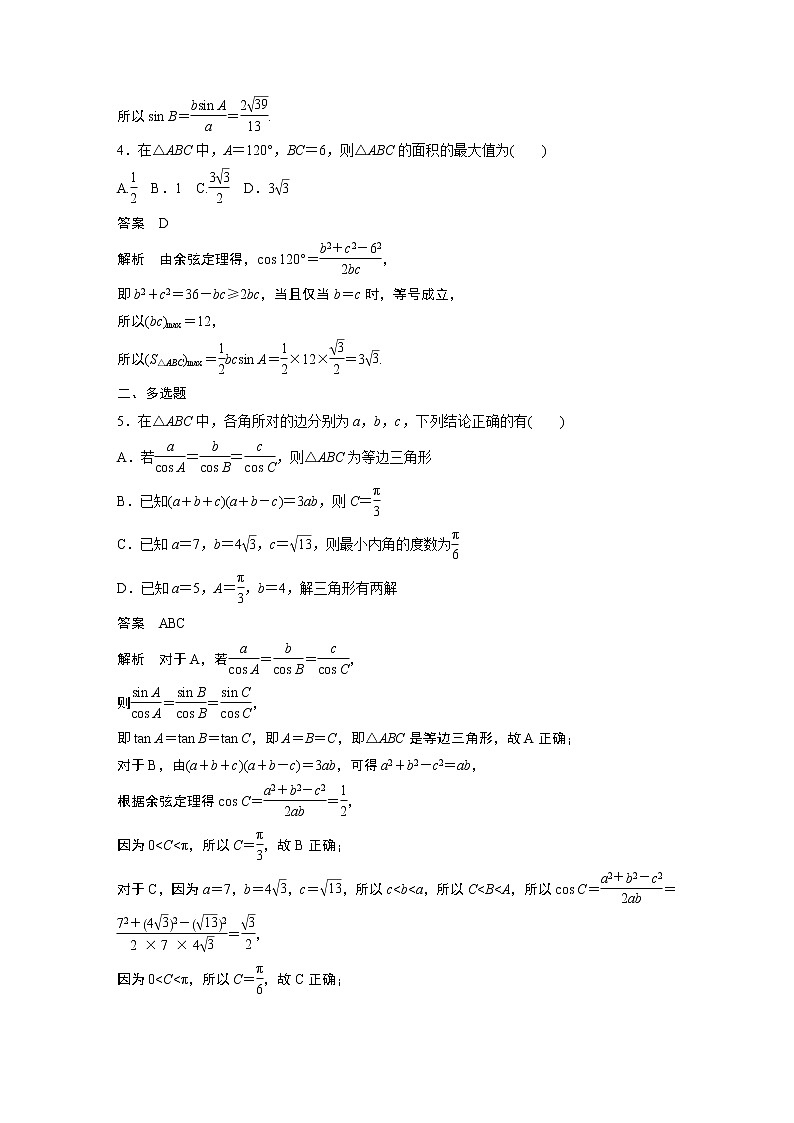 所以 sin B=bsin A/a=2√39/13.
4.在△ABC中,A=120°,BC=6,则△ABC的面积的最大值为(　　)
A.1/2　B.1　C.3√3/2　D.3√3
答案　D
解析　由余弦定理得,cos 120°=(b²+c²-6²)/2bc,
即b²+c²=36-bc≥2bc,当且仅当b=c时,等号成立,
所以(bc)max=12,
所以(S△ABC)max=1/2bcsin A=1/2×12×√3/2=3√3.
二、多选题
5.在△ABC中,各角所对的边分别为a,b,c,下列结论正确的有(　　)
A.若a/cos A=b/cos B=c/cos C,则△ABC为等边三角形
B.已知(a+b+c)(a+b-c)=3ab,则C=π/3
C.已知a=7,b=4√3,c=√13,则最小内角的度数为π/6
D.已知a=5,A=π/3,b=4,解三角形有两解
答案　ABC
解析　对于A,若a/cos A=b/cos B=c/cos C,
则sin A/cos A=sin B/cos B=sin C/cos C,
即tan A=tan B=tan C,即A=B=C,即△ABC是等边三角形,故A正确;
对于B,由(a+b+c)(a+b-c)=3ab,可得a²+b²-c²=ab,
根据余弦定理得cos C=(a²+b²-c²)/2ab=1/2,
因为0<C<π,所以C=π/3,故B正确;
对于C,因为a=7,b=4√3,c=√13,所以c<b<a,所以C<B<A,所以cos C=(a²+b²-c²)/2ab=
(7²+(4√3)²-(√13)²)/(2×7×4√3)=√3/2,
因为0<C<π,所以C=π/6,故C正确;